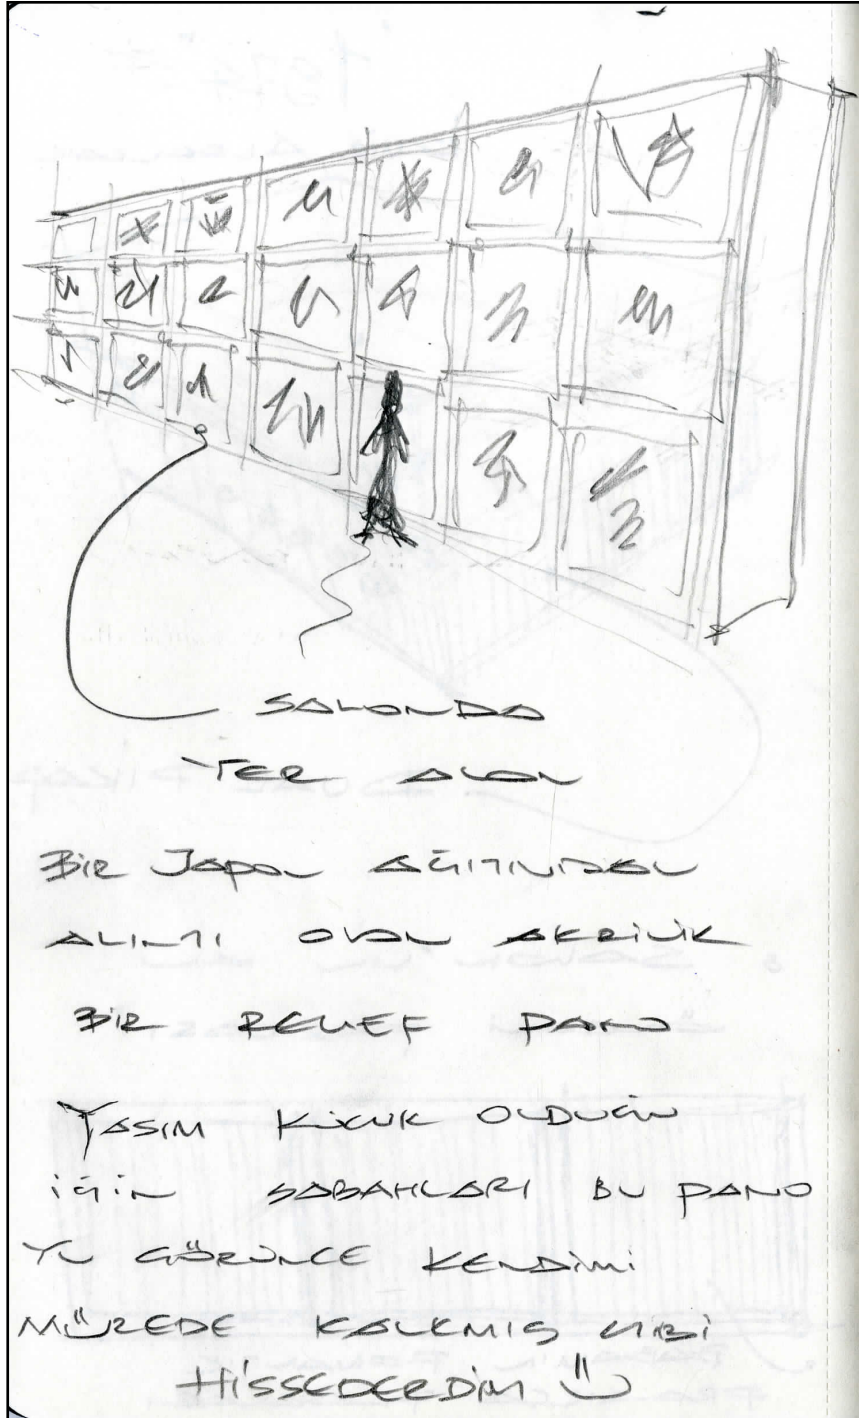 SALONDA
YER ALAN
BİR JAPON AĞITINDAN
ALINTI OLAN AKRİLİK
BİR RELIEF PANO
YAŞIM KÜÇÜK OLDUĞU
İÇİN SABAHLARI BU PANO
YU GÖRÜNCE KENDİMİ
MÜZEDE KALKMIŞ GİBİ
HİSSEDERDİM Ü